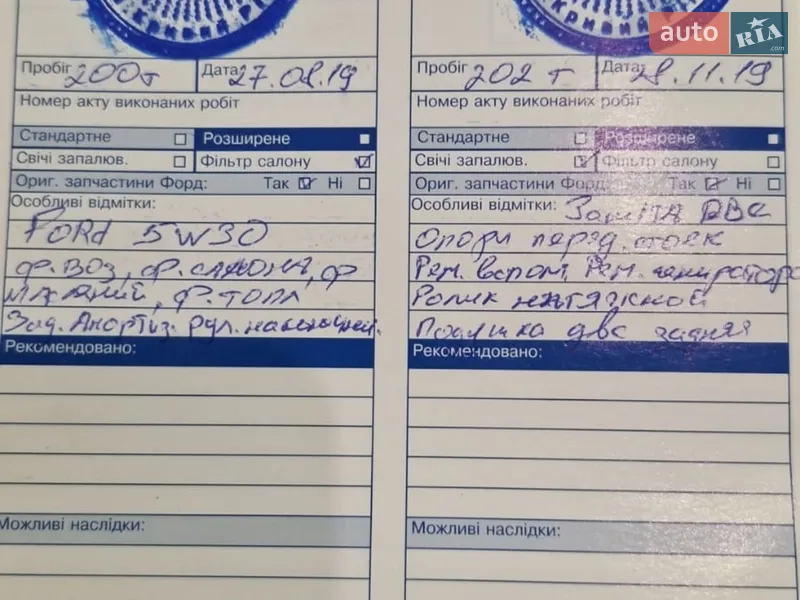 КРИВИЙ Р
КРИВИЙ
auto RIA .com
Пробіг 200т Дата: 27.08.19
Номер акту виконаних робіт
Стандартне Розширене
Свічі запалюв. Фільтр салону
Ориг. запчастини Форд: Так Ні
Особливі відмітки:
FORd 5W30
ф.воз, ф.салона, ф
масляний, ф.топл
Зад. Амортиз. рул. наконечник.
Рекомендовано:
Можливі наслідки:
Пробіг 202 т Дата: 28.11.19
Номер акту виконаних робіт
Стандартне Розширене
Свічі запалюв. Фільтр салону
Ориг. запчастини Форд: Так Ні
Особливі відмітки: Защита ДВС
Опори перед. стоек
Рем. вспом, Рем. гениратора
Ролик натяжной
Подушка двс задняя
Рекомендовано:
Можливі наслідки: